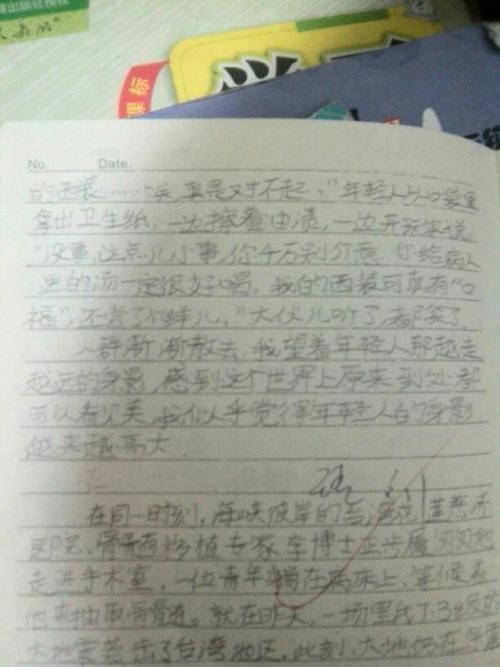 课标
No. Date.
的西装……唉,真是对不起。”年轻人从口袋里
拿出卫生纸,一边擦着油渍,一边开玩笑说:
“没事,这点儿小事,你千万别介意。你给病人
送的汤一定很好喝,我的西装可真有“口
福”,还尝了个鲜儿。”大伙儿听了,都笑了。
人群渐渐散去,我望着年轻人那越走
越远的身影,感到这个世界上原来到处都
可以看见美,我似乎觉得年轻人的身影
越来越高大。
在同一时刻,海峡彼岸的台湾花莲慈济
医院,骨髓移植专家李博士正步履匆匆地
走进手术室。一位青年躺在病床上,等候着
他来抽取骨髓。就在昨天,一场里氏7.3级的
大地震袭击了台湾地区。此刻,大地仍在